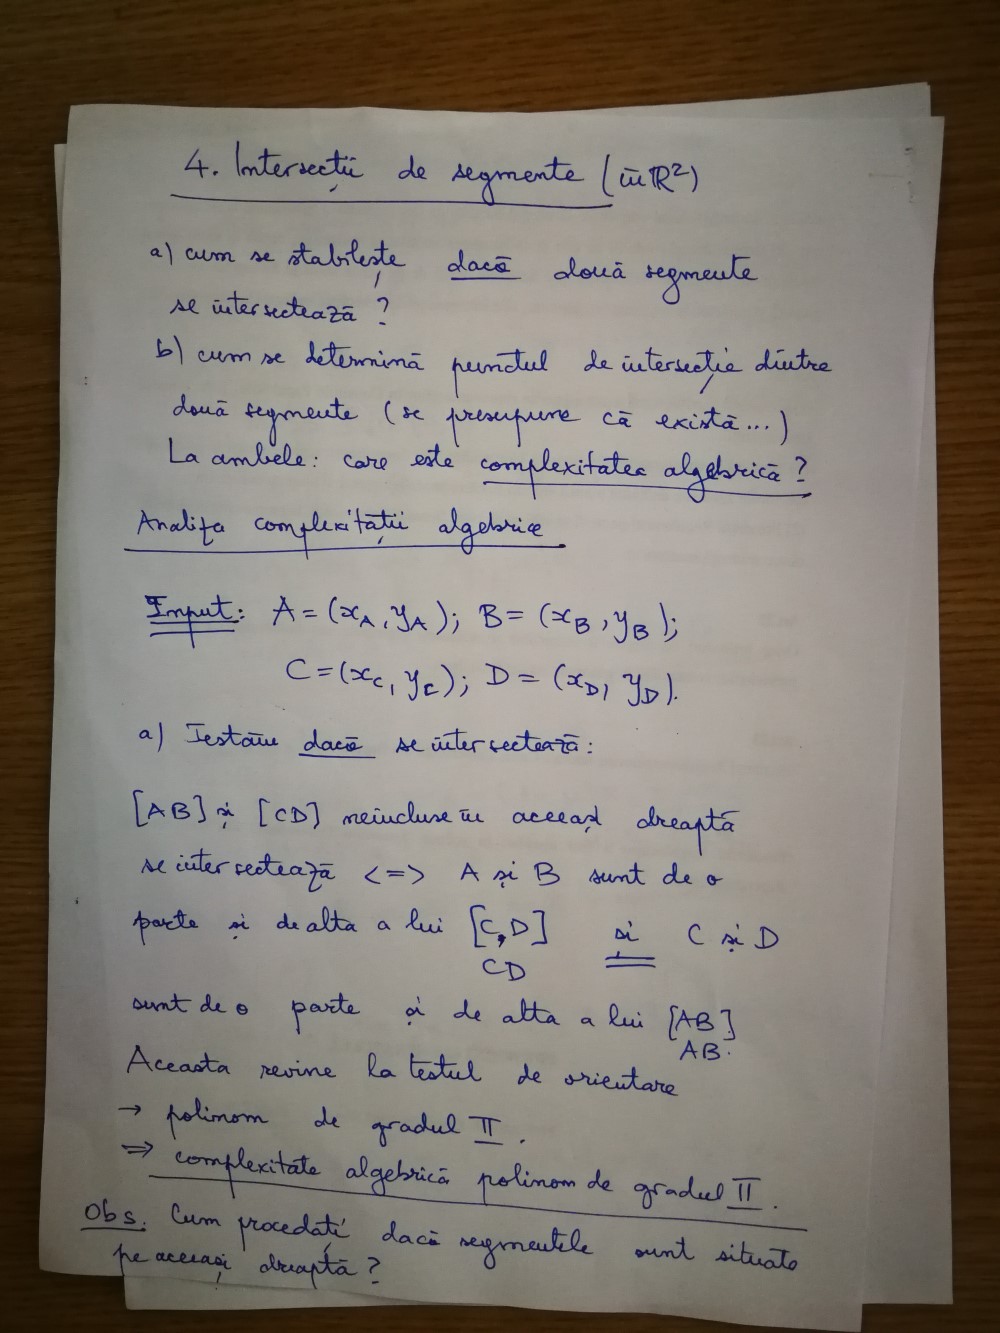 4. Intersecții de segmente (în ℝ²)
a) cum se stabilește dacă două segmente
se intersectează ?
b) cum se determină punctul de intersecție dintre
două segmente (se presupune că există...)
La ambele: care este complexitatea algebrică ?
Analiza complexității algebrice
Input: A = (x_A, y_A); B = (x_B, y_B);
C = (x_C, y_C); D = (x_D, y_D).
a) Testăm dacă se intersectează:
[AB] și [CD] neincluse în aceeași dreaptă
se intersectează <=> A și B sunt de o
parte și de alta a lui [C,D] și C și D
CD
sunt de o parte și de alta a lui [AB]
AB.
Aceasta revine la testul de orientare
→ polinom de gradul II.
⇒ complexitate algebrică polinom de gradul II.
Obs. Cum procedați dacă segmentele sunt situate
pe aceeași dreaptă ?